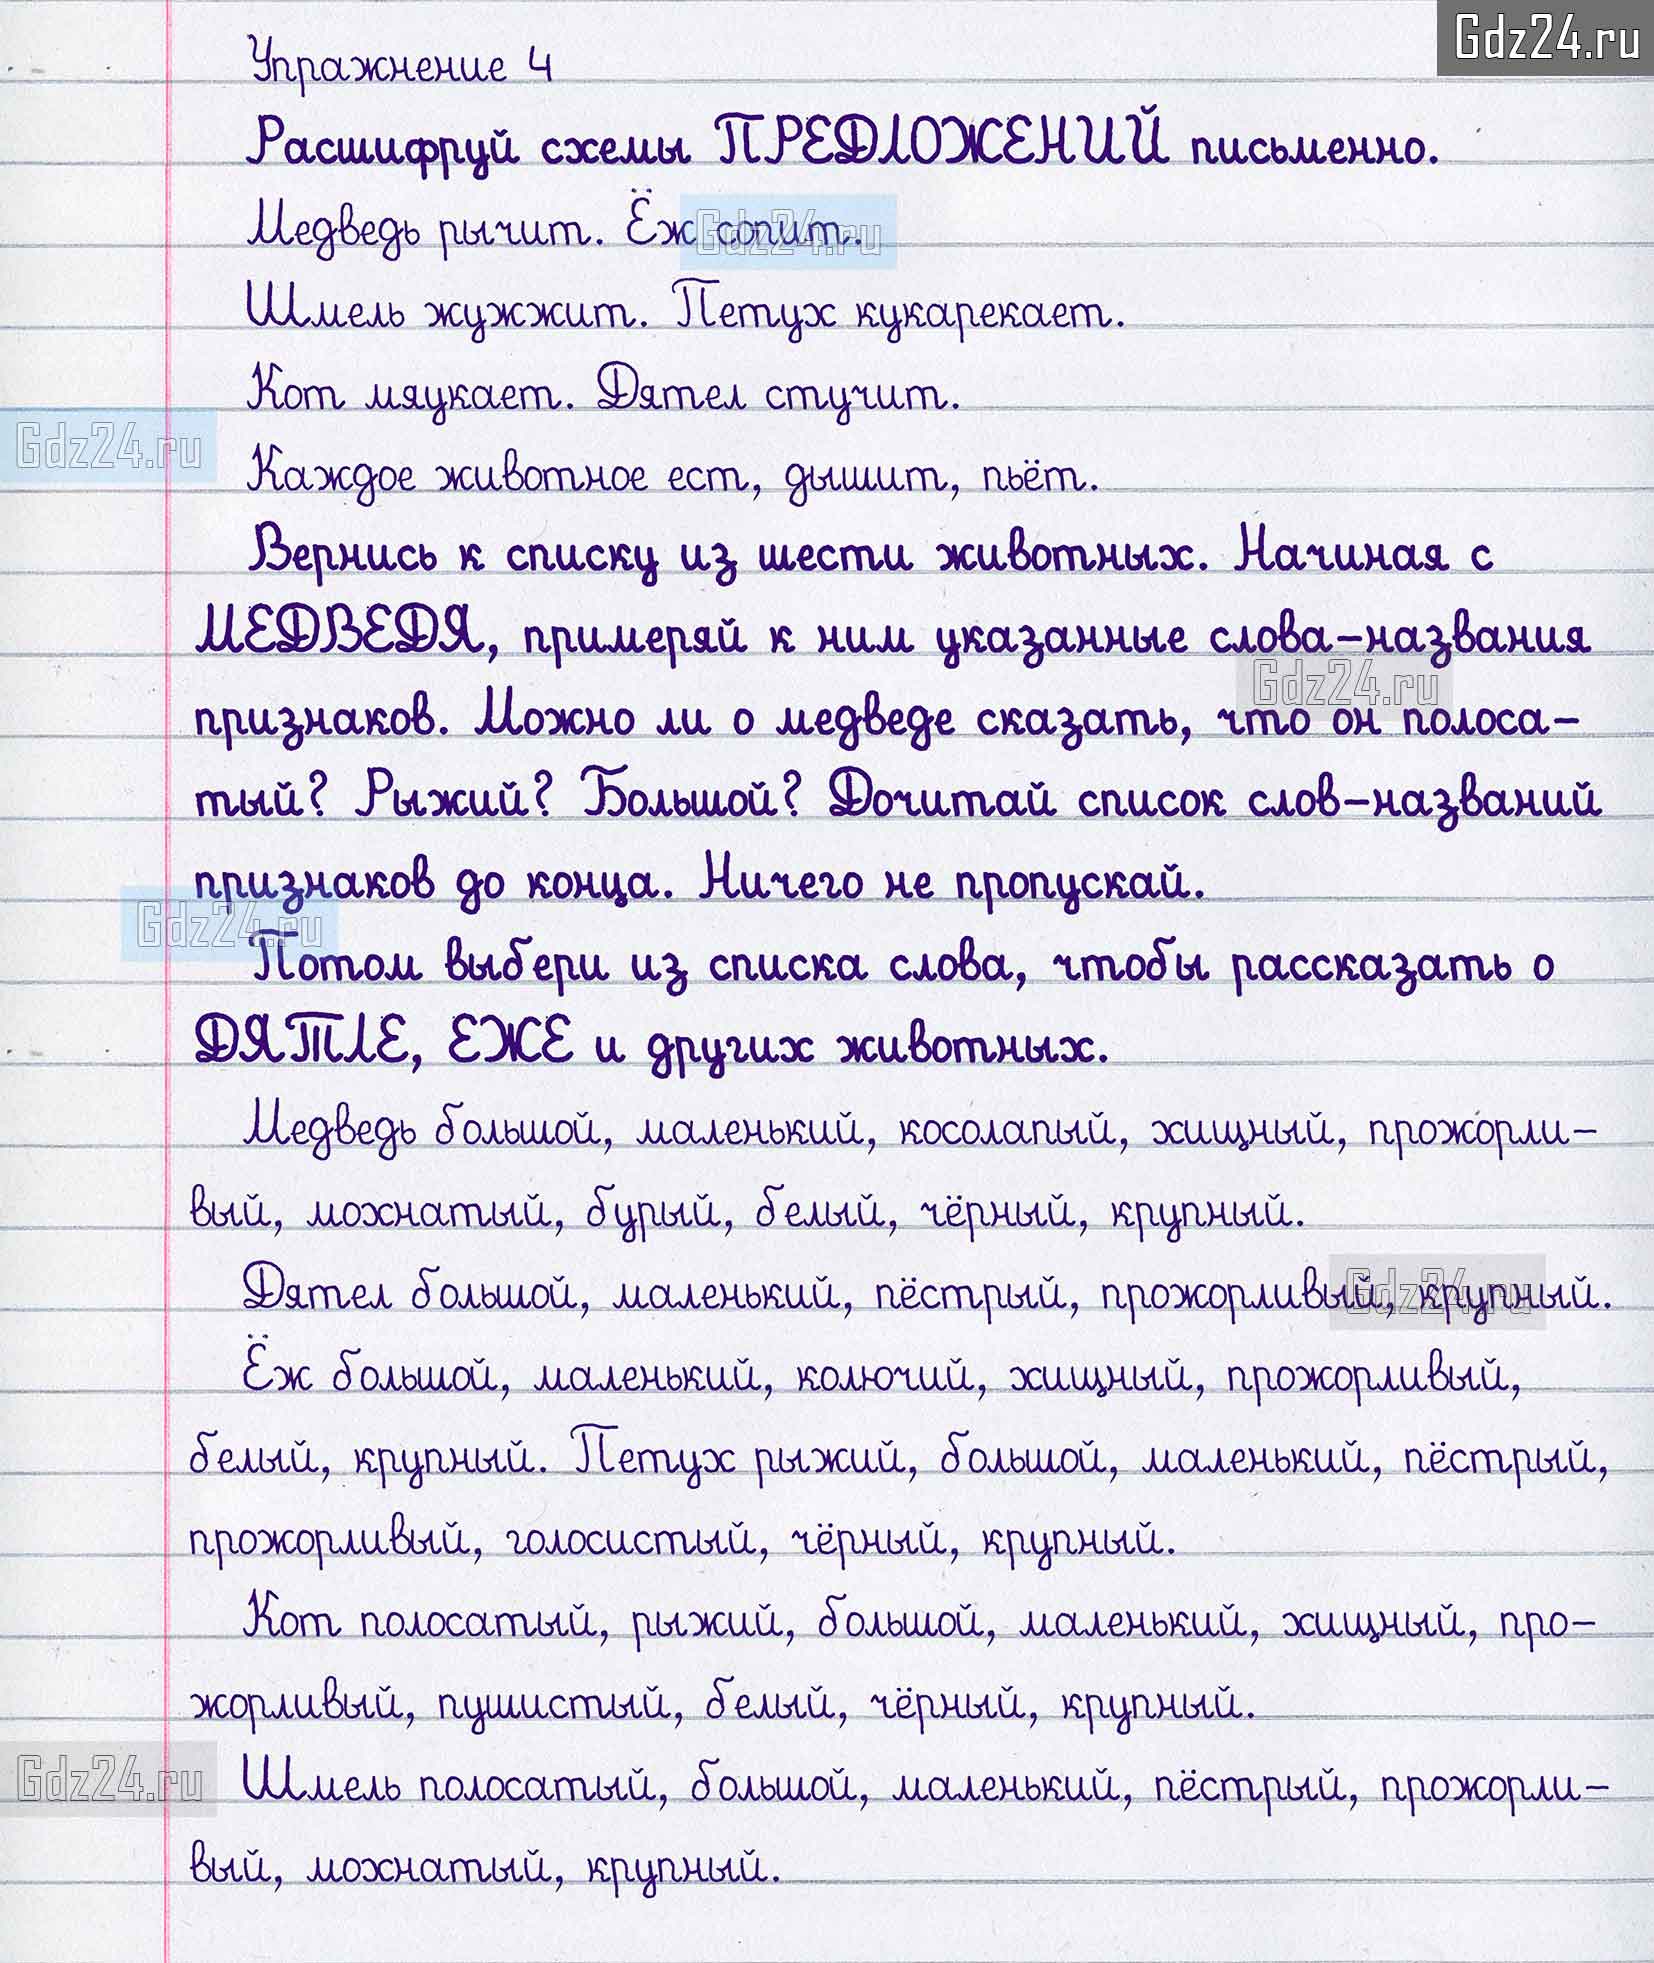 Gdz24.ru
Упражнение 4
Расшифруй схемы ПРЕДЛОЖЕНИЙ письменно.
Медведь рычит. Ёж сопит.
Gdz24.ru
Шмель жужжит. Петух кукарекает.
Кот мяукает. Дятел стучит.
Gdz24.ru
Каждое животное ест, дышит, пьёт.
Вернись к списку из шести животных. Начиная с
МЕДВЕДЯ, примеряй к ним указанные слова-названия
Gdz24.ru
признаков. Можно ли о медведе сказать, что он полоса-
тый? Рыжий? Большой? Дочитай список слов-названий
признаков до конца. Ничего не пропускай.
Gdz24.ru
Потом выбери из списка слова, чтобы рассказать о
ДЯТЛЕ, ЕЖЕ и других животных.
Медведь большой, маленький, косолапый, хищный, прожорли-
вый, мохнатый, бурый, белый, чёрный, крупный.
Дятел большой, маленький, пёстрый, прожорливый, крупный.
Gdz24.ru
Ёж большой, маленький, колючий, хищный, прожорливый,
белый, крупный. Петух рыжий, большой, маленький, пёстрый,
прожорливый, голосистый, чёрный, крупный.
Кот полосатый, рыжий, большой, маленький, хищный, про-
жорливый, пушистый, белый, чёрный, крупный.
Gdz24.ru
Шмель полосатый, большой, маленький, пёстрый, прожорли-
вый, мохнатый, крупный.